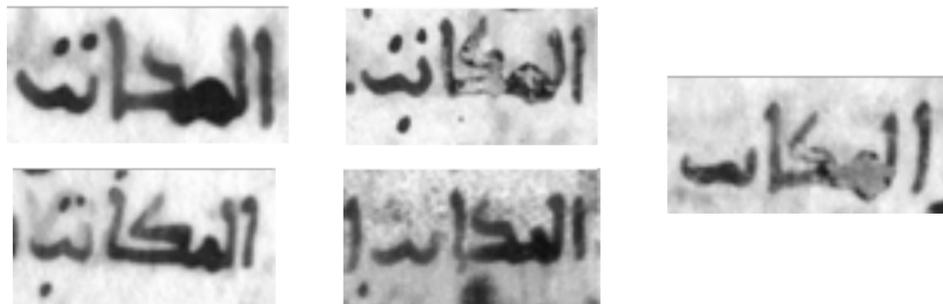 المكاتب المكاتب
المكاتب
المكاتب المكاتب